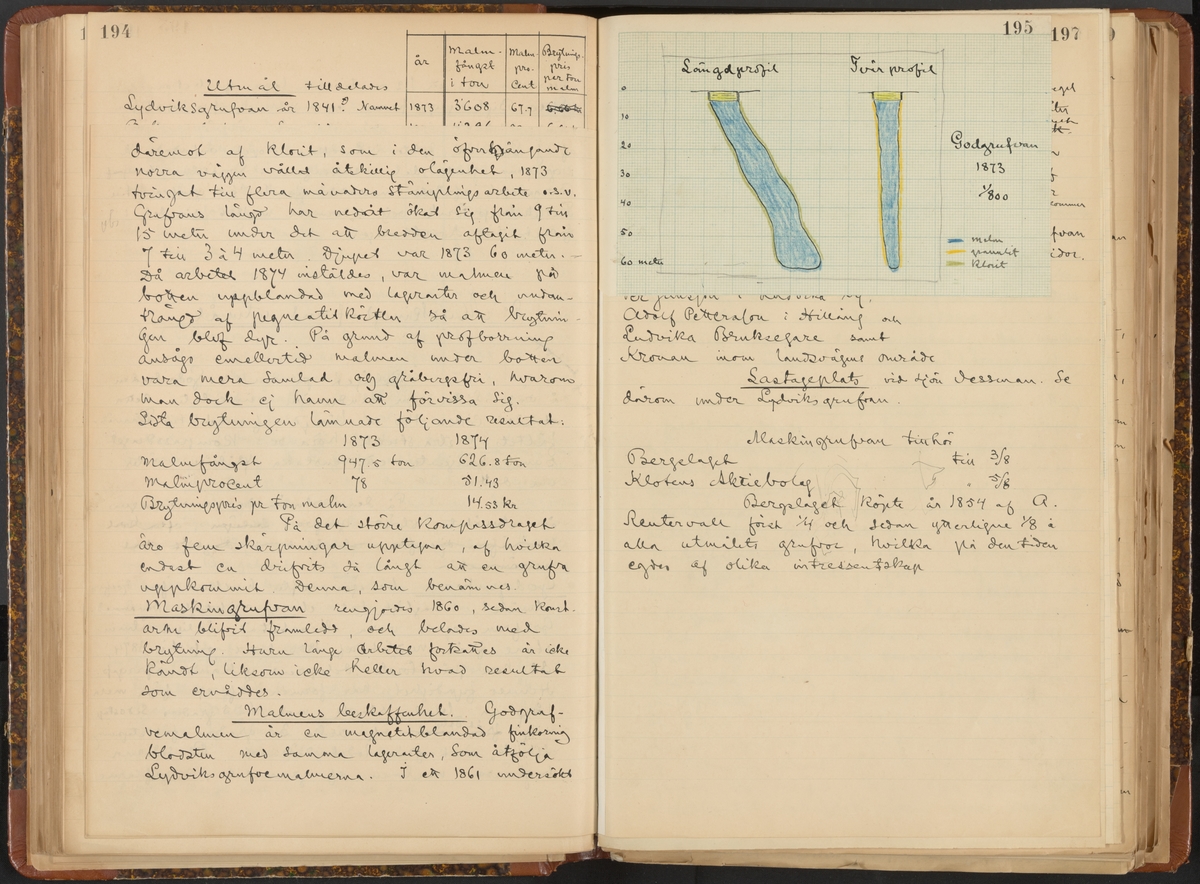 194
Utmål tilldelades
Lydviksgrufvan år 1841. Namnet
år Malmfångst i ton Malmprocent Brytningspris per ton malm
1873 3608 67.7
däremot af klorit, som i den öfverhängande
norra väggen vållat åtskillig olägenhet, 1873
tvingat till flera månaders stämplingsarbete o.s.v.
Grufvans längd har nedåt ökat sig från 9 till
15 meter under det att bredden aftagit från
7 till 3 à 4 meter. Djupet var 1873 60 meter.
Då arbetet 1874 inställdes, var malmen på
botten uppblandad med lagerarter och undan-
trängd af pegmatitkörtlar så att brytnin-
gen blef dyr. På grund af profborrning
ansågs emellertid malmen under botten
vara mera samlad och gråbergsfri, hvarom
man dock ej hann att förvissa sig.
Sista brytningen lämnade följande resultat:
1873 1874
Malmfångst 947.5 ton 626.8 ton
Malmprocent 78 51.43
Brytningspris pr ton malm 14.53 kr
På det större kompassdraget
äro fem skärpningar upptagna, af hvilka
endast en drifvits så långt att en grufva
uppkommit. Denna, som benämnes
Maskingrufvan rengjordes 1860, sedan konst-
arm blifvit framledd, och belades med
brytning. Huru länge arbetet fortsattes är icke
kändt, liksom icke heller hvad resultat
som ernåddes.
Malmens beskaffenhet. Godgruf-
vemalmen är en magnetitblandad finkornig
blodsten med samma lagerarter, som åtfölja
Lydviksgrufvemalmerna. I ett 1861 undersökt
195
197
Längdprofil Tvärprofil
0
10
20
30
40
50
60 meter
Godgrufvan
1873
1/800
malm
granulit
klorit
Adolf Pettersson i Hilläng och
Ludvika Bruksegare samt
Kronan inom landsvägens område
Lastageplats vid sjön Väsman. Se
därom under Lydviksgrufvan.
Maskingrufvan tillhör
Bergslaget till 3/8
Klotens Aktiebolag " 5/8
Bergslaget köpte år 1854 af A.
Rentervall först 1/4 och sedan ytterligare 1/8 i
alla utmålets grufvor, hvilka på den tiden
egdes af olika intressentskap